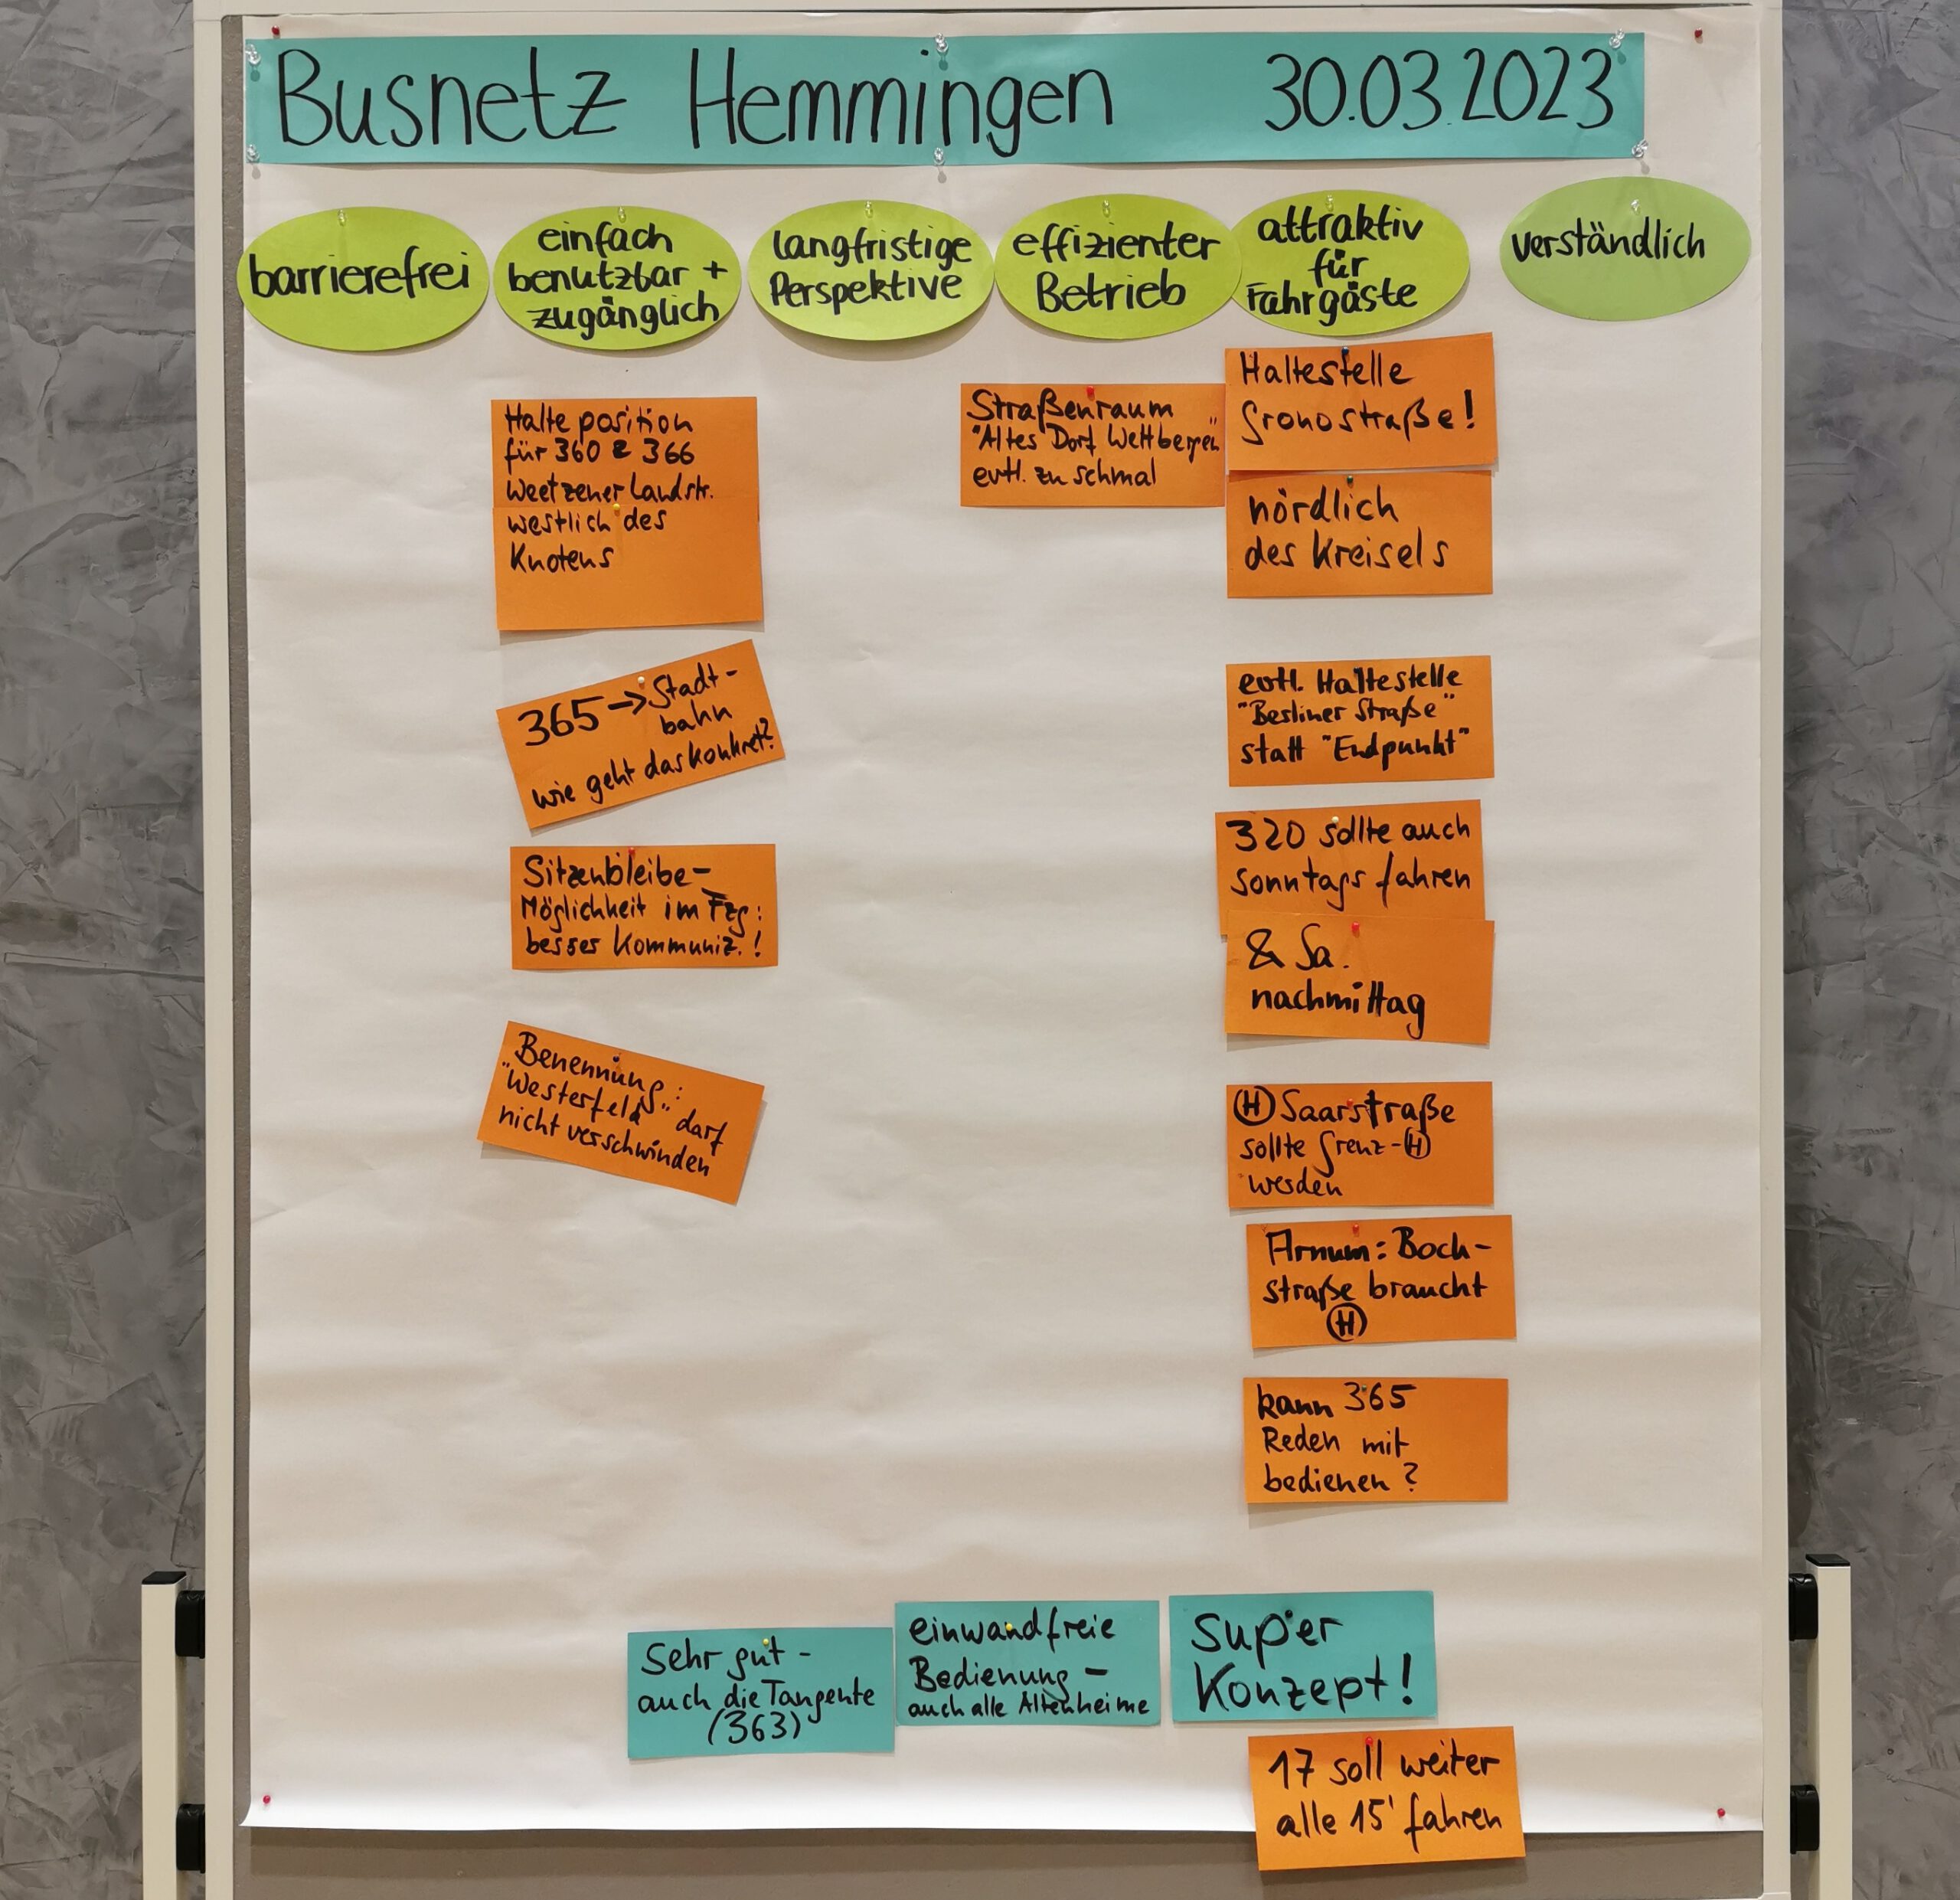 Busnetz Hemmingen 30.03.2023
barrierefrei
einfach
benutzbar +
zugänglich
langfristige
Perspektive
effizienter
Betrieb
attraktiv
für
Fahrgäste
verständlich
Halteposition
für 360 & 366
Weetzener Landstr.
westlich des
Knotens
365 → Stadt-
bahn
wie geht das konkret?
Sitzenbleibe-
Möglichkeit im Fzg:
besser Kommuniz.!
Benennung:
"Westerfeld" darf
nicht verschwinden
Straßenraum
"Altes Dorf Wettbergen"
evtl. zu schmal
Haltestelle
Gronostraße!
nördlich
des Kreisels
evtl. Haltestelle
"Berliner Straße"
statt "Endpunkt"
320 sollte auch
sonntags fahren
& Sa.
nachmittag
(H) Saarstraße
sollte Grenz-(H)
werden
Arnum: Boch-
straße braucht
(H)
kann 365
Reden mit
bedienen?
Sehr gut -
auch die Tangente
(363)
einwandfreie
Bedienung -
auch alle Altenheime
super
Konzept!
17 soll weiter
alle 15' fahren